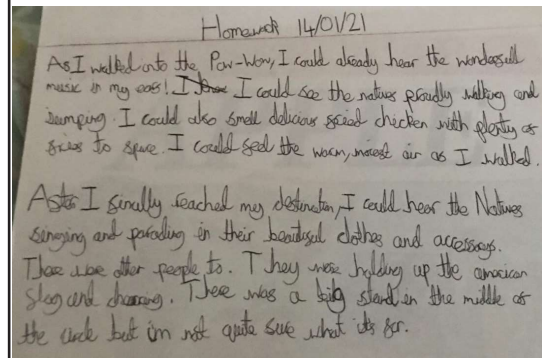 Homework 14/01/21
As I walked onto the Pow-Wow, I could already hear the wonderfull
music in my ears! I could see the natives proudly walking and
jumping. I could also smell delicious fried chicken with plenty of
fries to spare. I could feel the warm, moist air as I walked.
As I finally reached my destination, I could hear the Natives
singing and parading in their beautiful clothes and accessorys.
There were other people to. They were holding up the american
flag and cheering. There was a big stand in the middle of
the circle but im not quite sure what its for.